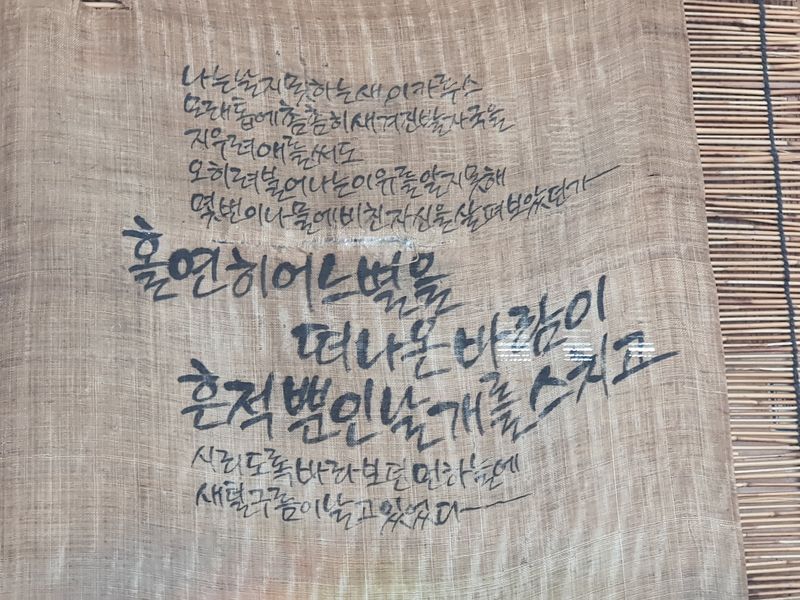 나는 날지 못하는 새, 이카루스
모래톱에 촘촘히 새겨진 발자국을
지우려 애를 써도
오히려 불어나는 이유를 알지 못해
몇 번이나 물에 비친 자신을 살펴보았던가
홀연히 어느 별을
떠나온 바람이
흔적뿐인 날개를 스치고
시리도록 바라보던 먼 하늘에
새털구름이 날고 있었다